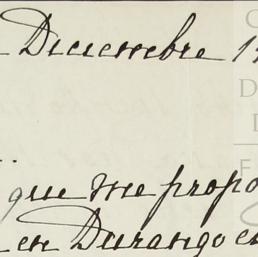 Diciembre 1
que me propo
en Durango e